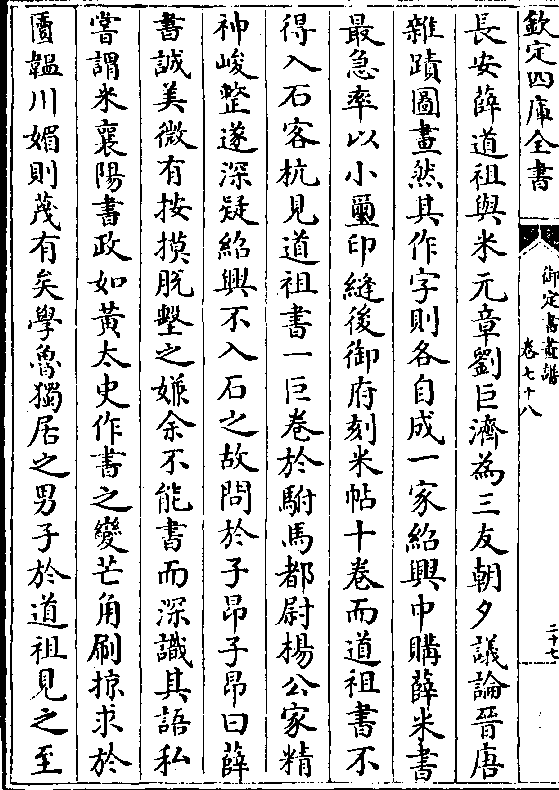 欽定四庫全書
御定書畫譜
卷七十八
二十七
長安薛道祖與米元章劉巨濟為三友朝夕議論晉唐
雜蹟圖畫然其作字則各自成一家紹興中購薛米書
最急率以小璽印縫後御府刻米帖十卷而道祖書不
得入石客杭見道祖書一巨卷於駙馬都尉楊公家精
神峻整遂深疑紹興不入石之故問於子昂子昂曰薛
書誠美微有按摸脫墼之嫌余不能書而深識其語私
嘗謂米襄陽書政如黃太史作書之變芒角刷掠求於
匵韞川媚則蔑有矣學魯獨居之男子於道祖見之至